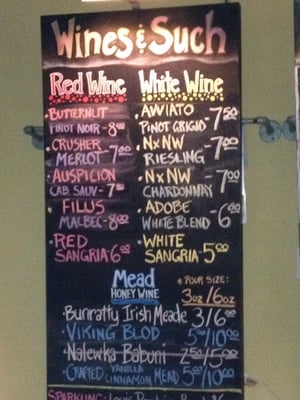 Wines & Such
Red Wine
• BUTTERNUT
PINOT NOIR - 8.00
• CRUSHER
MERLOT - 7.00
• AUSPICION
CAB. SAUV - 7.50
• FILUS
MALBEC - 8.00
• RED
SANGRIA - 6.00
White Wine
• AVVIATO
PINOT GRIGIO - 7.50
• NxNW
RIESLING - 7.00
• NxNW
CHARDONNAY - 7.00
• ADOBE
WHITE BLEND - 6.00
• WHITE
SANGRIA - 5.00
Mead
HONEY WINE
* POUR SIZE:
3oz/6oz
• Bunratty Irish Meade 3/6.00
• VIKING BLOD 5.00/10.00
• Nalewka Babuni 2.50/5.00
• CRAFTED VANILLA CINNAMON MEAD 5.00/10.00
SPARKLING: